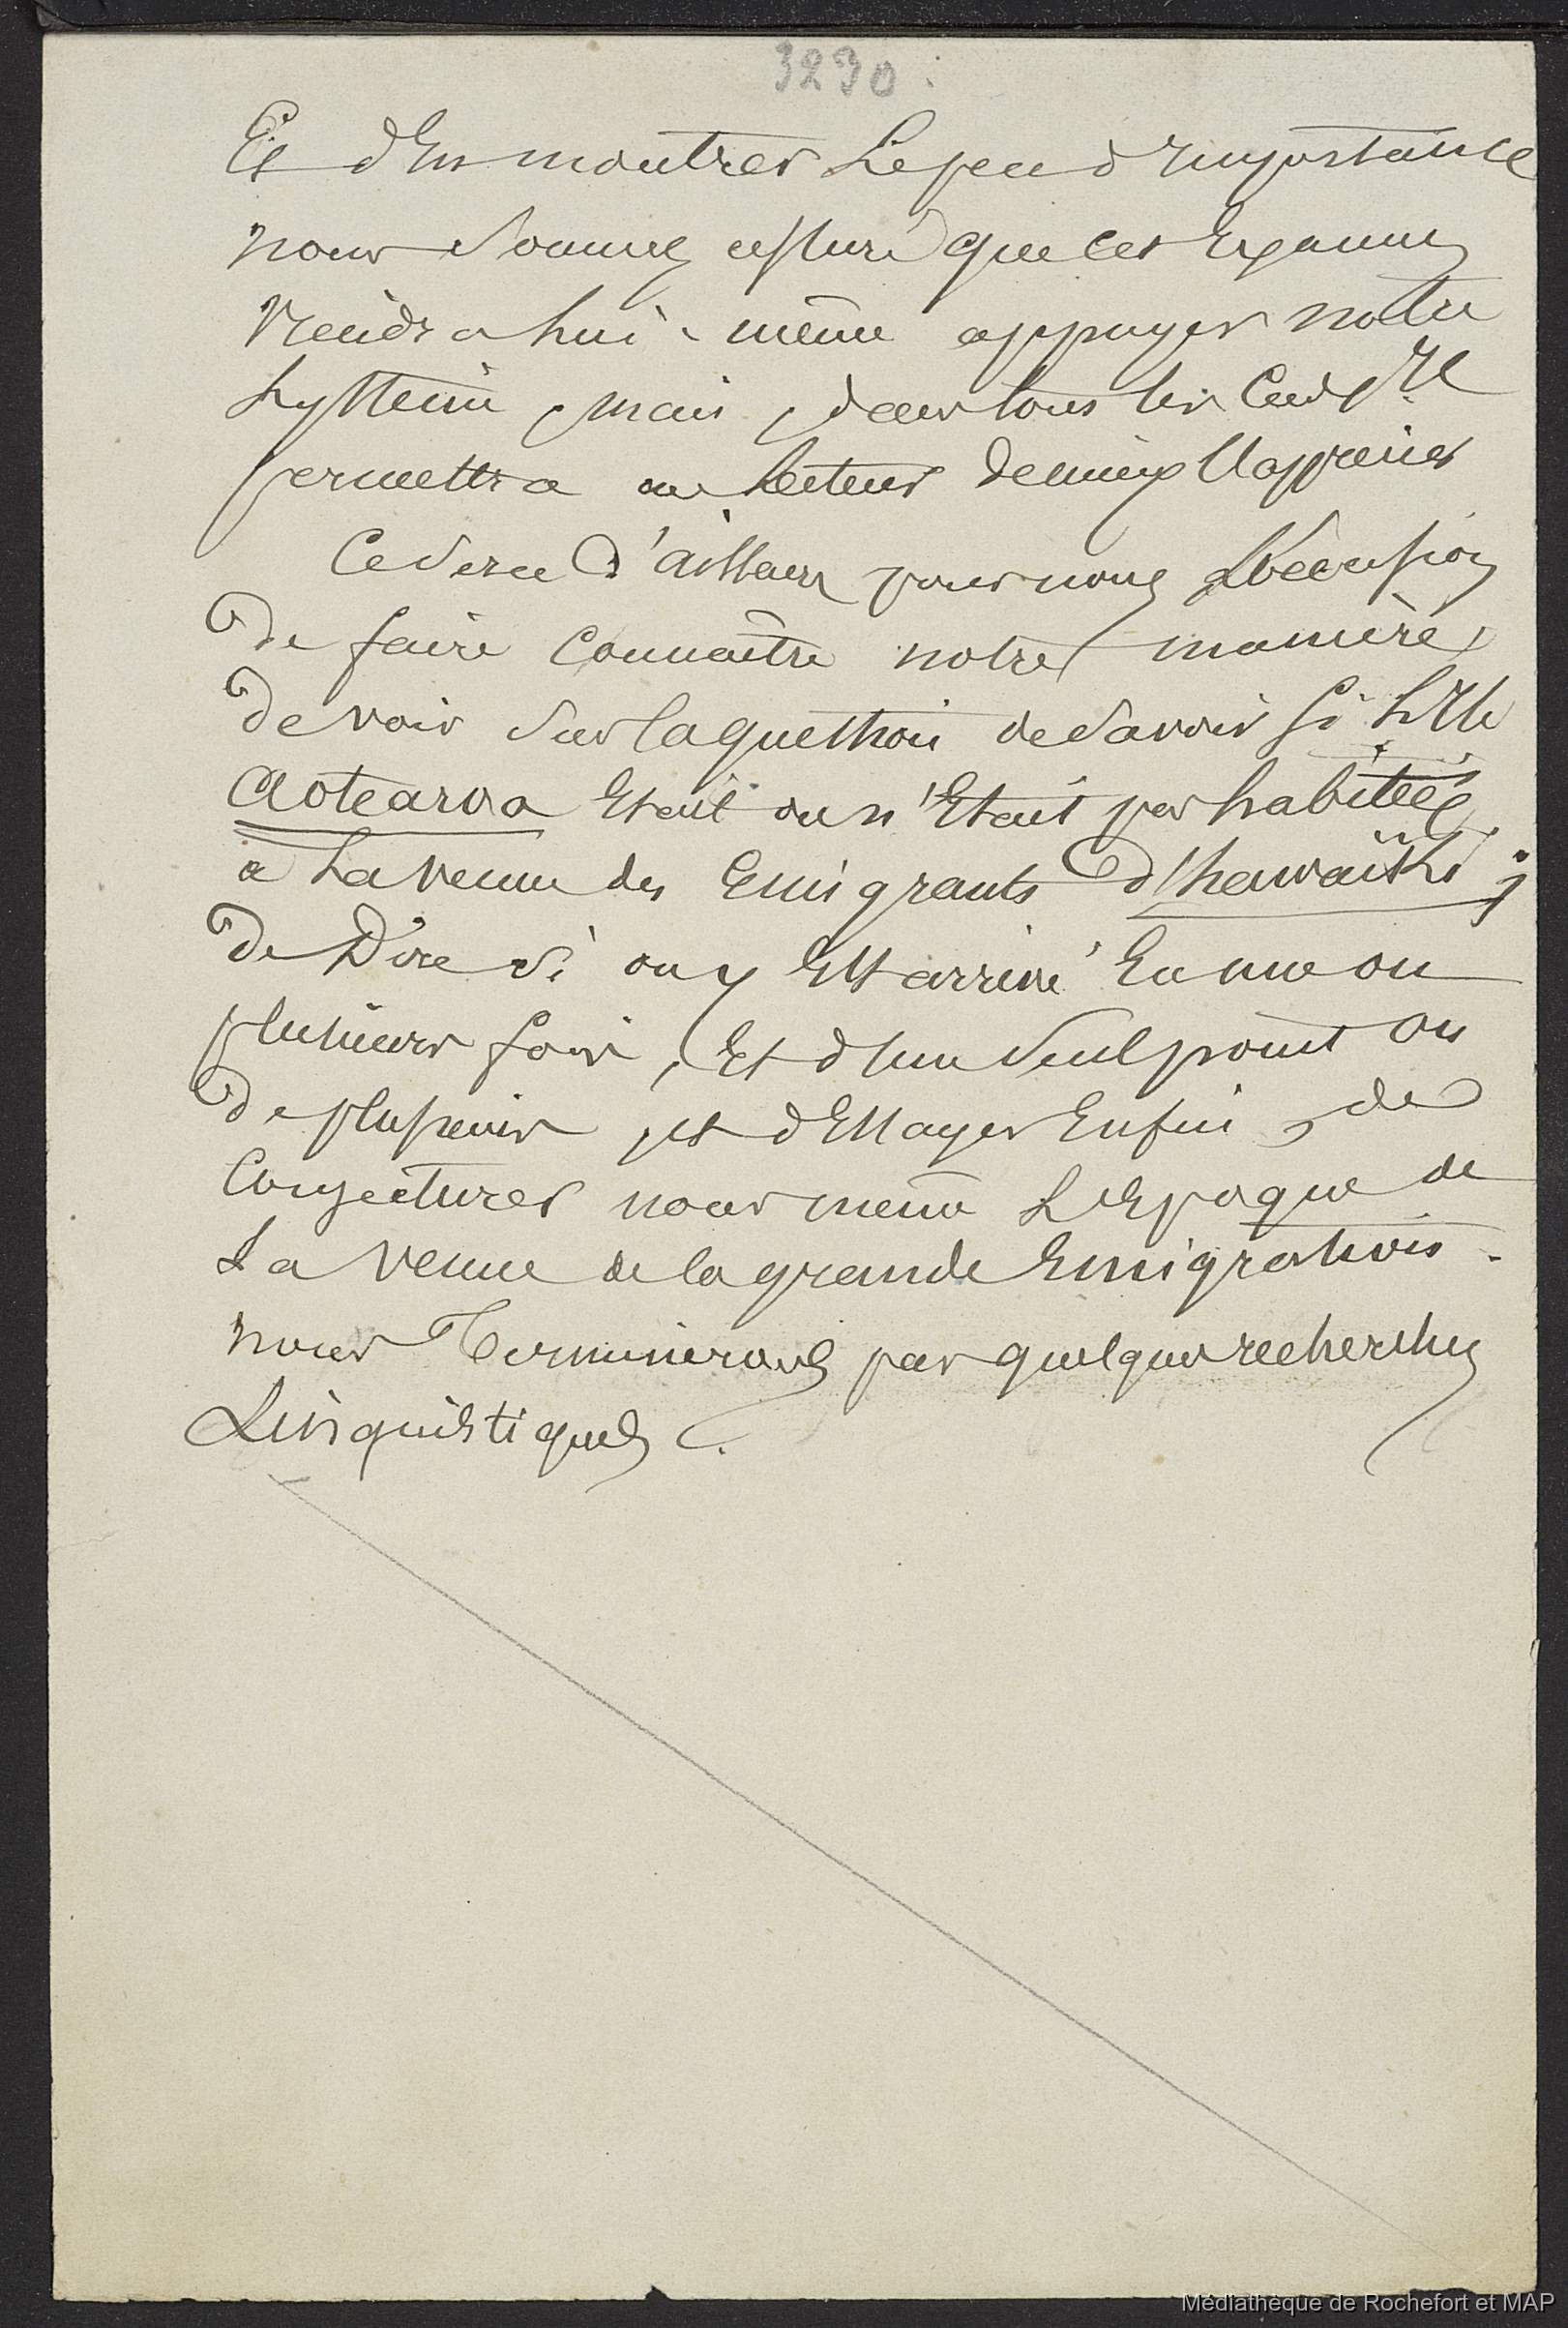 3230.
Et d'en montrer le peu d'importance
nous sommes assuré que cet Examen
viendra lui-même appuyer notre
systême, mais, dans tous les cas, il
permettra au lecteur de mieux l'apprécier
Ce sera d'ailleurs pour nous l'occasion
de faire connaître notre manière
de voir sur la question de savoir si l'Ile
Aotearoa Etait ou n'Etait pas habitée
a la venue des Emigrants d'hawaïki;
de Dire si on y Est arrivé En une ou
plusieurs fois, Et d'un seul point ou
de plusieurs, et d'Essayer Enfin, de
Conjecturer nous même l'Epoque de
La venue de la grande Emigration.
nous Terminerons par quelques recherches
Linguistiques.
Médiathèque de Rochefort et MAP